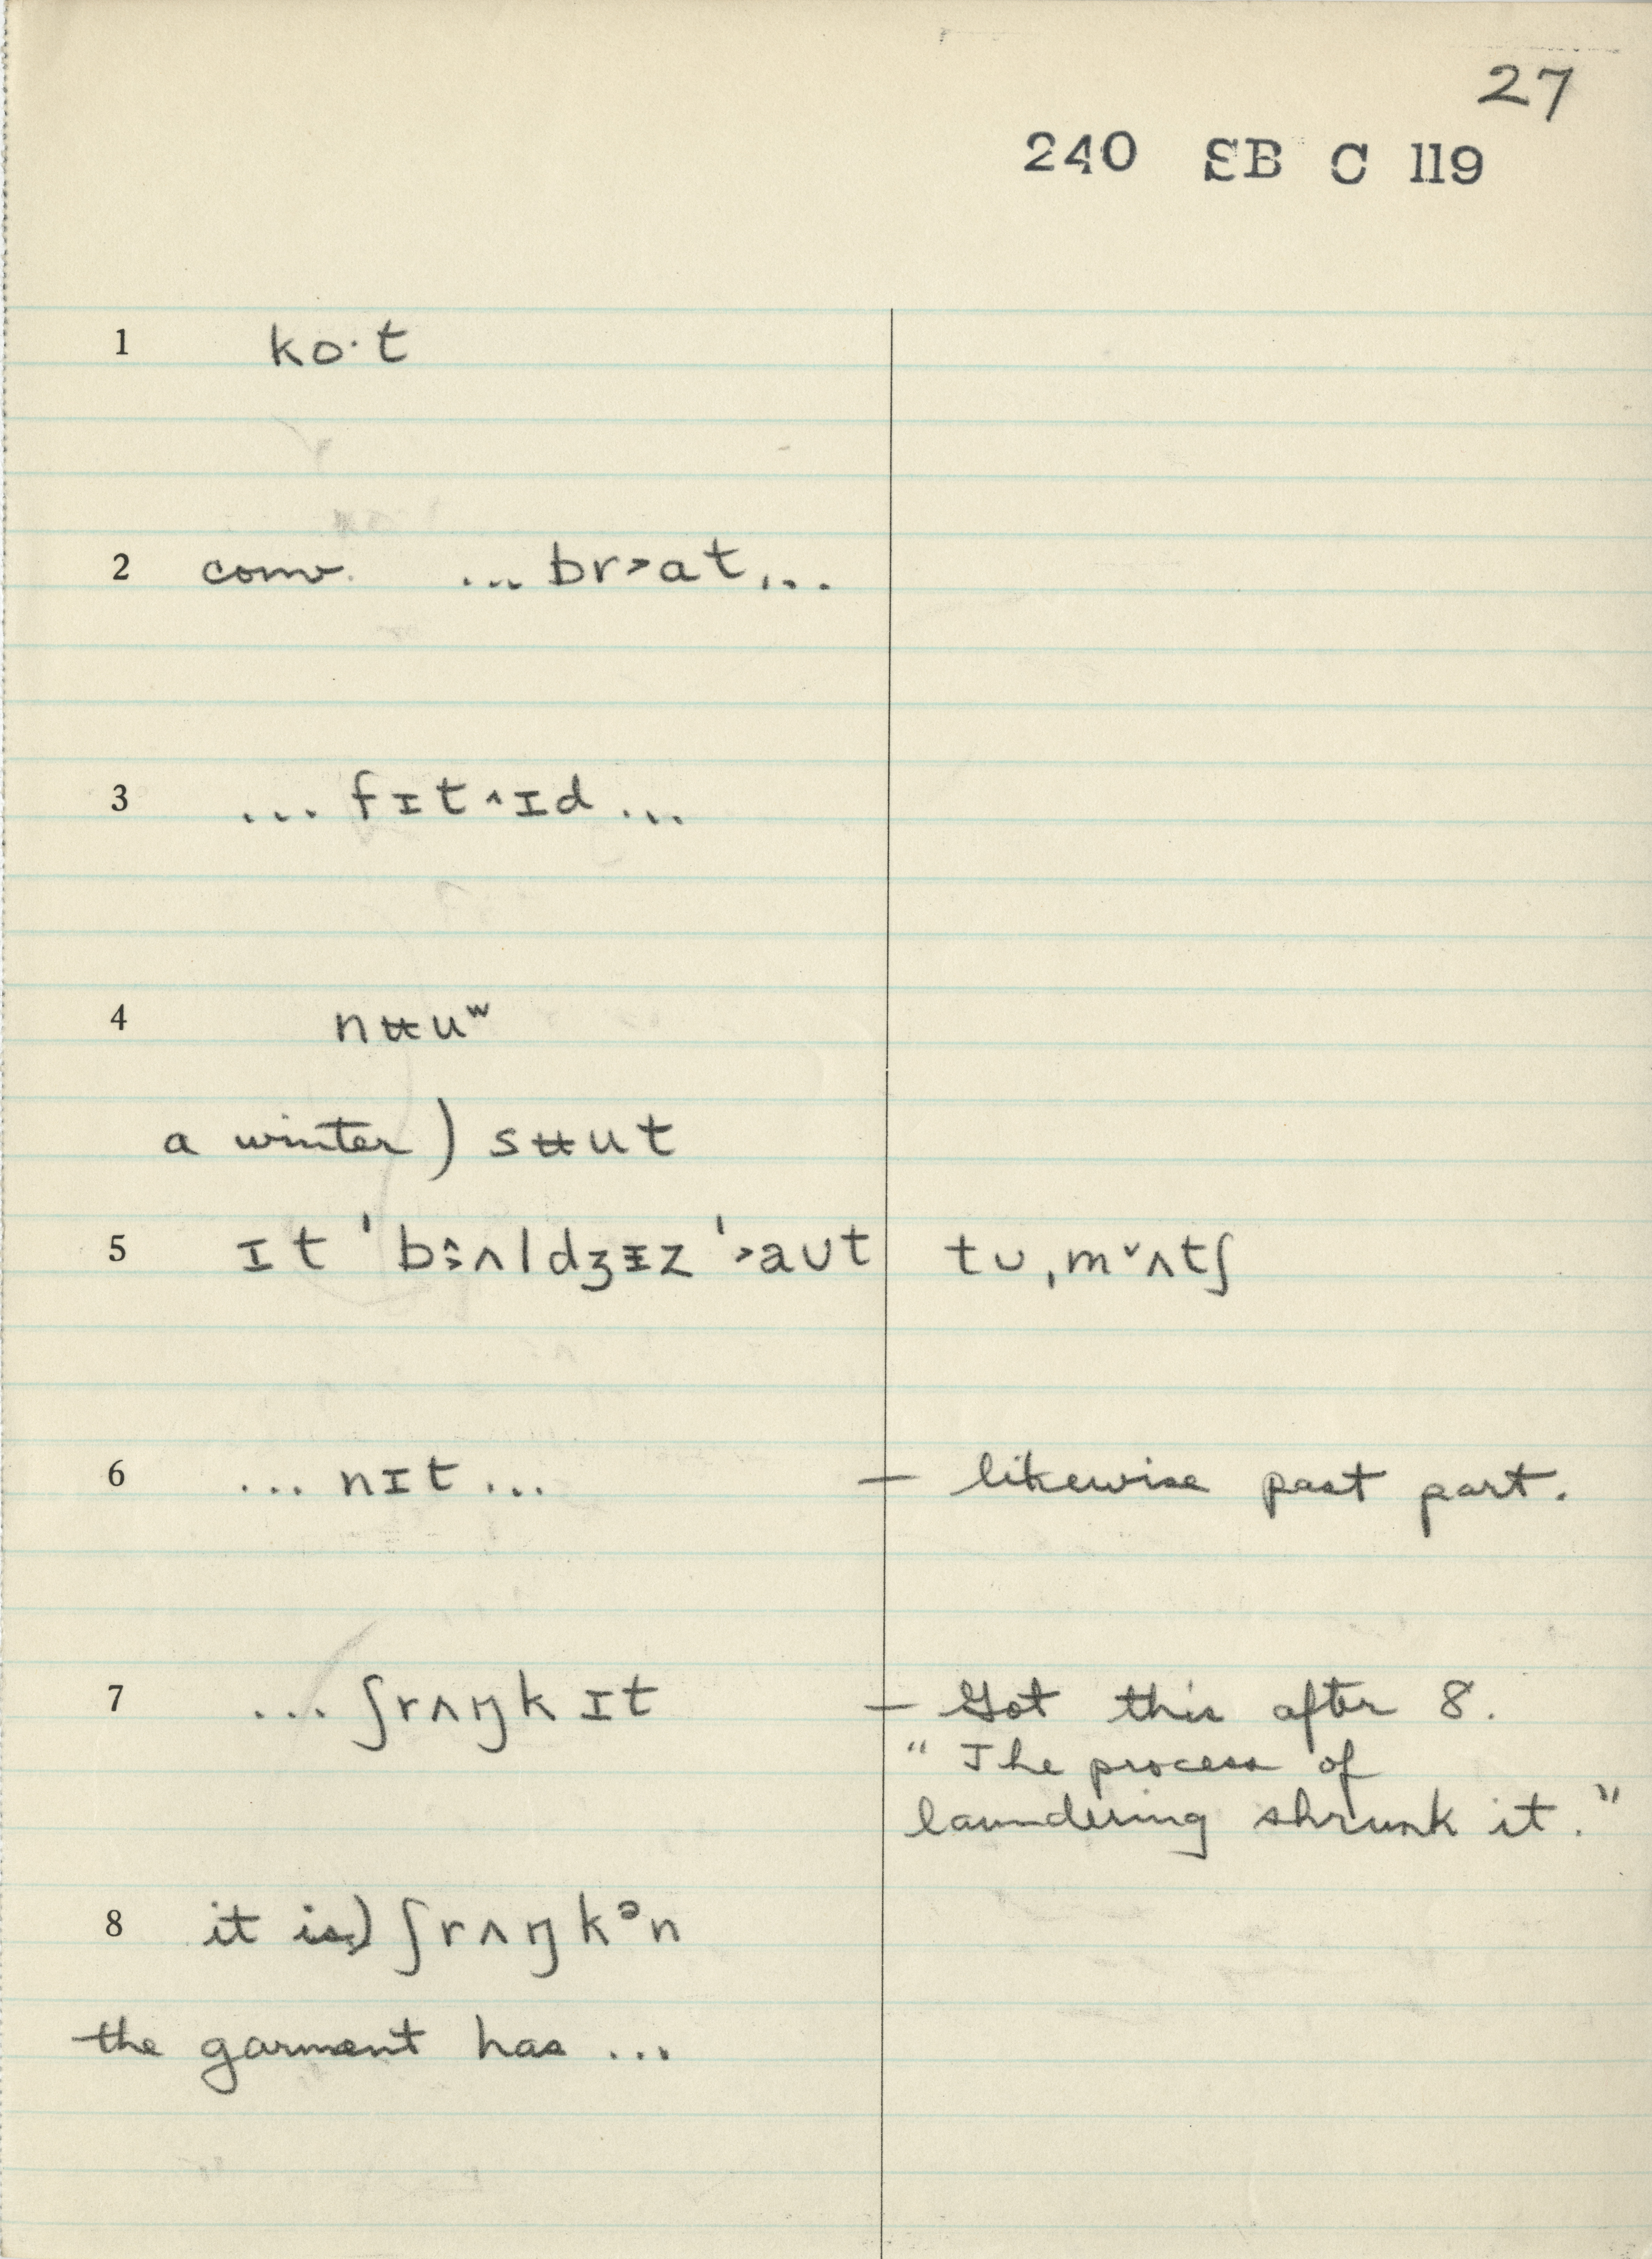 27
240 SB C 119
1 ko·t
2 conv. ... br˃at...
3 ... fɪt˄ɪd ...
4 nʉuʷ
a winter) sʉut
5 ɪt 'bɜ̂ʌldʒᵻz '˃aʊt tʊ ˌm˅ʌtʃ
6 ... nɪt ... — likewise past part.
7 ... ʃrʌŋk ɪt — Got this after 8.
" The process of
laundering shrunk it. "
8 it is) ʃrʌŋkᵊn
the garment has ...